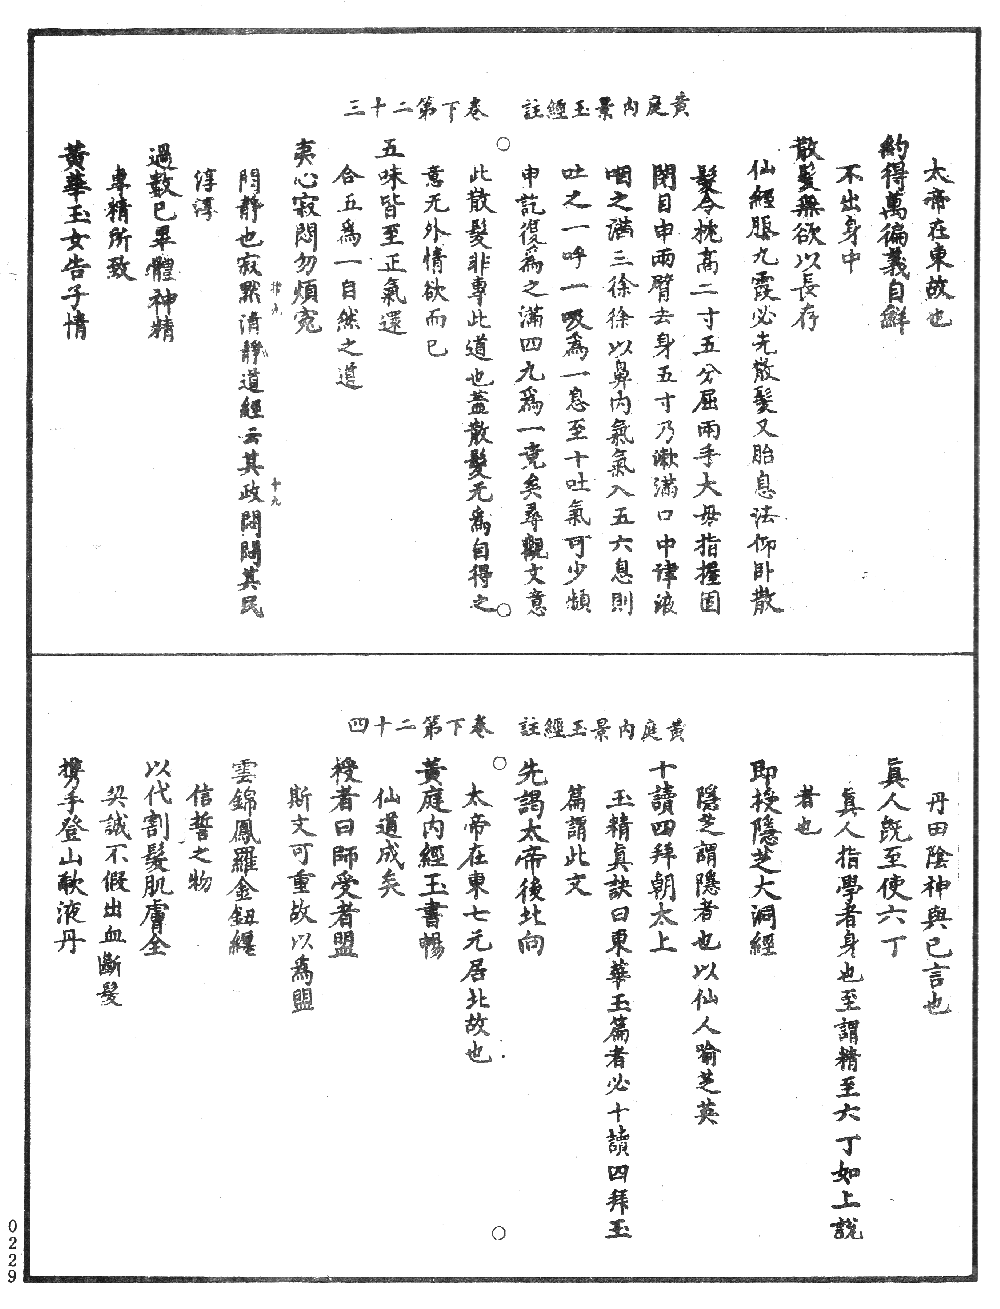 黃庭內景玉經註　卷下第二十三
太帝在東故也
約得萬徧義自鮮
不出身中
散髮無欲以長存
仙經服九霞必先散髮又胎息法仰臥散
髮令枕高二寸五分屈兩手大母指握固
閉目申兩臂去身五寸乃漱滿口中津液
咽之滿三徐徐以鼻內氣氣入五六息則
吐之一呼一吸爲一息至十吐氣可少頻
申訖復爲之滿四九爲一竟矣尋觀文意
此散髮非專此道也蓋散髮无爲自得之
意无外情欲而已
五味皆至正氣還
合五爲一自然之道
夷心寂悶勿煩寃
悶靜也寂默清靜道經云其政悶悶其民
淳淳
過數已畢體神精
專精所致
黃華玉女告子情
黃庭內景玉經註　卷下第二十四
丹田陰神與已言也
眞人旣至使六丁
眞人指學者身也至謂精至六丁如上說
者也
即授隱芝大洞經
隱芝謂隱者也以仙人喻芝英
十讀四拜朝太上
玉精眞訣曰東華玉篇者必十讀四拜玉
篇謂此文
先謁太帝後北向
太帝在東七元居北故也
黃庭內經玉書暢
仙道成矣
授者曰師受者盟
斯文可重故以爲盟
雲錦鳳羅金鈕纏
信誓之物
以代割髮肌膚全
契誠不假出血斷髮
携手登山歃液丹
0229